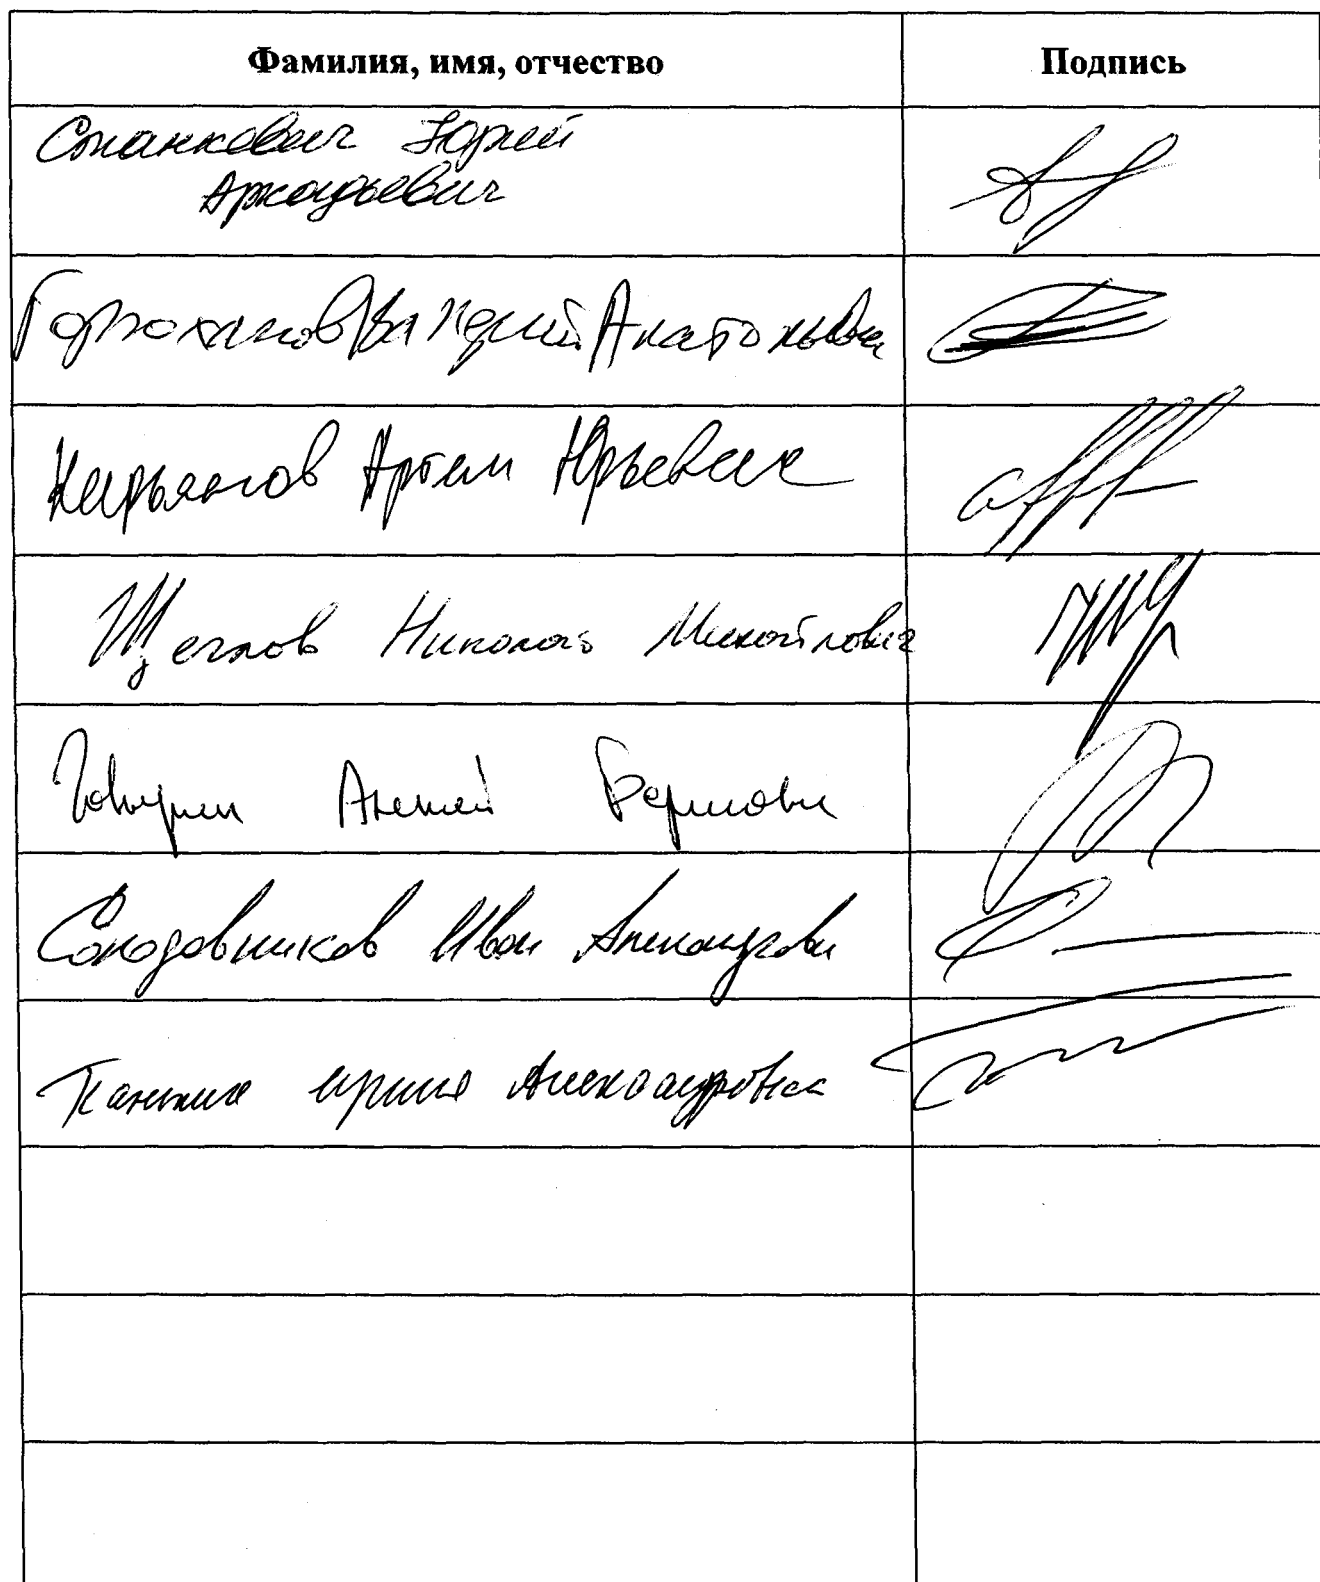 Фамилия, имя, отчество Подпись
Станкевич Юрий
Аркадьевич
Анатольевич
Кирьянов Артем Юрьевич
Щеглов Николай Михайлович
Говырин Алексей Борисович
Солодовников Иван Александрович
Панькина Ирина Александровна